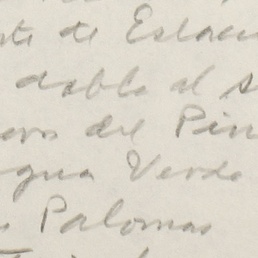 ste de Eslav
dobla al s
ero del Pin
gua Verde
s Palomas